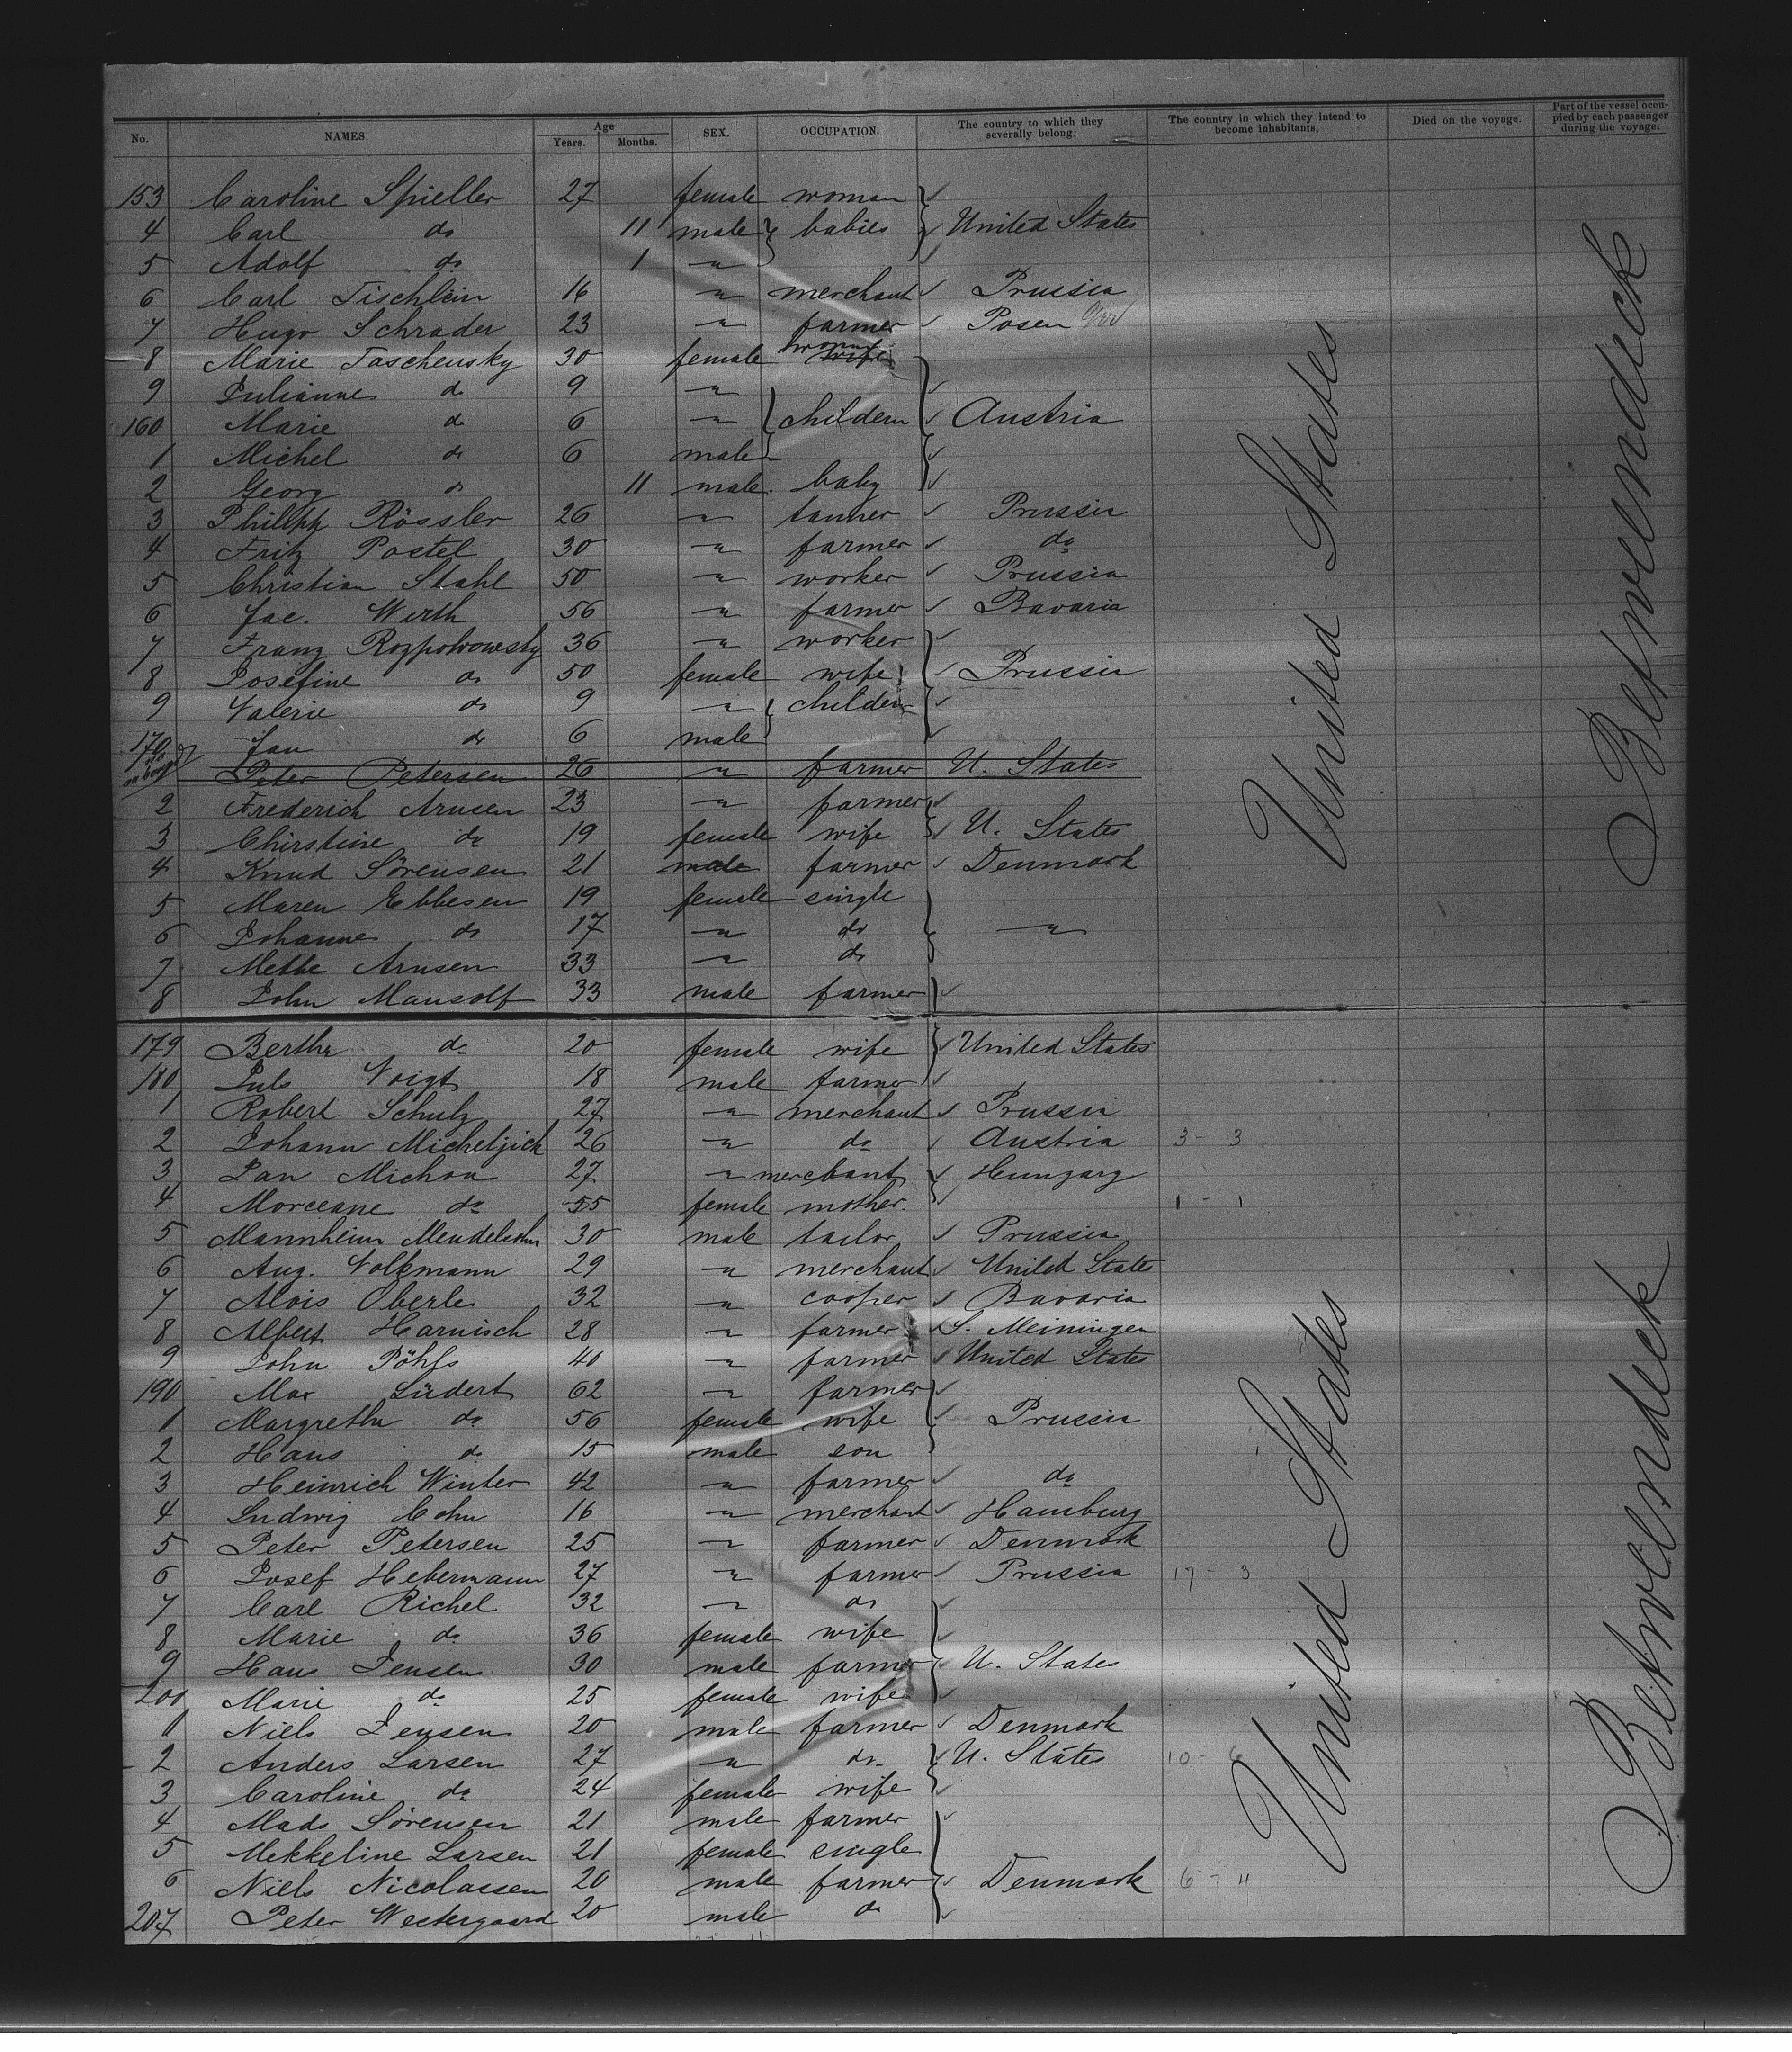 No. NAMES. Age Years. Months. SEX. OCCUPATION. The country to which they severally belong. The country in which they intend to become inhabitants. Died on the voyage. Part of the vessel occupied by each passenger during the voyage.
153 Caroline Spieller 27 female woman
4 Carl do 11 male babies United States
5 Adolf do 1 "
6 Carl Tischlein 16 " merchant Prussia
7 Hugo Schrader 23 " farmer Posen
8 Marie Taschensky 30 female woman wife
9 Julianne do 9 "
160 Marie do 6 " childern Austria
1 Michel do 6 male
2 Georg do 11 male baby
3 Philipp Rössler 26 " tanner Prussia
4 Fritz Postel 30 " farmer do
5 Christian Stahl 50 " worker Prussia
6 Jac. Wirth 56 " farmer Bavaria
7 Franz Rozpolrowsky 36 " worker
8 Josefine do 50 female wife Prussia
9 Valerie do 9 " childern
170 Jan do 6 male
Peter Petersen 26 " farmer U. States
2 Frederich Arnsen 23 " farmer
3 Chirstine do 19 female wife U. States
4 Knud Sörensen 21 male farmer Denmark
5 Maren Ebbesen 19 female single
6 Johanne do 17 " do "
7 Mette Arnsen 33 " do
8 John Mansolf 33 male farmer
179 Bertha do 20 female wife United States
180 Juls Voigt 18 male farmer
1 Robert Schulz 27 " merchant Prussia
2 Johann Michelzick 26 " do Austria 3 - 3
3 Jan Michon 27 " merchant Hungary
4 Morceane do 55 female mother. 1 - 1
5 Mannheim Mendelsohn 30 male tailor Prussia
6 Aug. Volkmann 29 " merchant United States
7 Alois Oberle 32 " cooper Bavaria
8 Albert Harnisch 28 " farmer S. Meiningen
9 John Pöhls 40 " farmer United States
190 Max Lüdert 62 " farmer
1 Margretha do 56 female wife Prussia
2 Hans do 15 male son
3 Heinrich Winter 42 " farmer do
4 Ludwig Cohn 16 " merchant Hamburg
5 Peter Petersen 25 " farmer Denmark
6 Josef Hebermann 27 " farmer Prussia 17 - 3
7 Carl Richel 32 " do
8 Marie do 36 female wife
9 Hans Jensen 30 male farmer U. States
200 Marie do 25 female wife
1 Niels Jensen 20 male farmer Denmark
2 Anders Larsen 27 " do U. States 10 - 6
3 Caroline do 24 female wife
4 Mads Sörensen 21 male farmer
5 Mekkeline Larsen 21 female single
6 Niels Nicolassen 20 male farmer Denmark 6 - 4
207 Peter Westergaard 20 male do
United States
Betweendeck
United States
Betweendeck